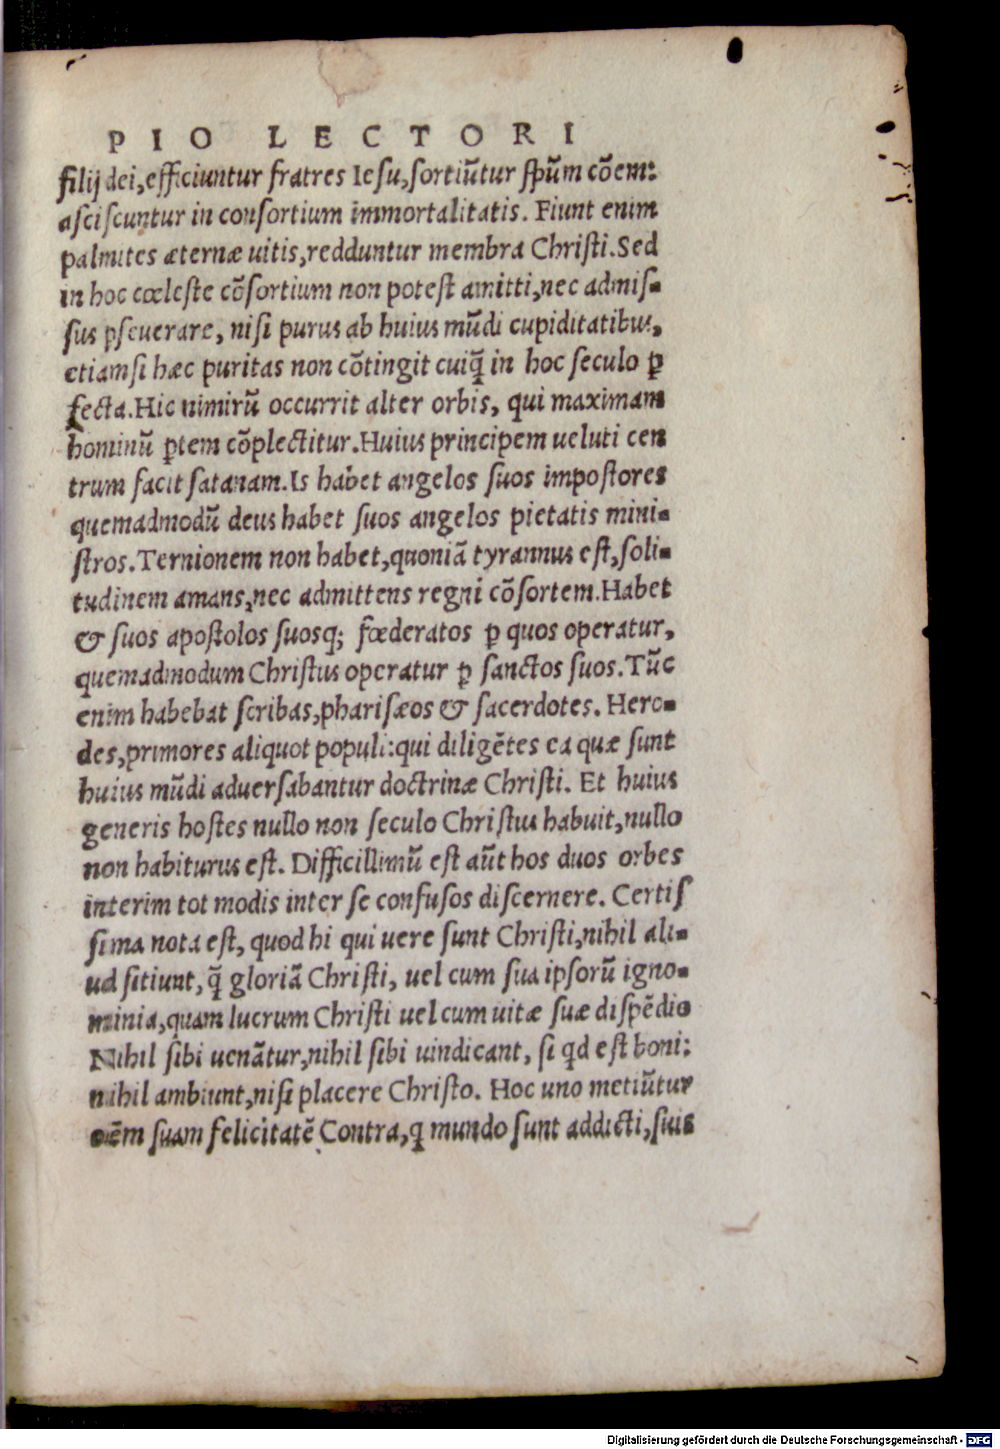 PIO LECTORI
filij dei, efficiuntur fratres Iesu, sortiũtur spũm cõem:
asciscuntur in consortium immortalitatis. Fiunt enim
palmites æternæ uitis, redduntur membra Christi. Sed
in hoc cœleste cõsortium non potest amitti, nec admis-
sus ꝑseuerare, nisi purus ab huius mũdi cupiditatibus,
etiamsi hæc puritas non cõtingit cuiq̃ in hoc seculo ꝑ
fecta. Hic nimirũ occurrit alter orbis, qui maximam
hominũ ꝑtem cõplectitur. Huius principem ueluti cen
trum facit satanam. Is habet angelos suos impostores
quemadmodũ deus habet suos angelos pietatis mini-
stros. Ternionem non habet, quoniã tyrannus est, soli-
tudinem amans, nec admittens regni cõsortem. Habet
& suos apostolos suosq; fœderatos ꝑ quos operatur,
quemadmodum Christus operatur ꝑ sanctos suos. Tũc
enim habebat scribas, pharisæos & sacerdotes. Hero-
des, primores aliquot populi: qui diligẽtes ea quæ sunt
huius mũdi aduersabantur doctrinæ Christi. Et huius
generis hostes nullo non seculo Christus habuit, nullo
non habiturus est. Difficillimũ est aũt hos duos orbes
interim tot modis inter se confusos discernere. Certis
sima nota est, quod hi qui uere sunt Christi, nihil ali-
ud sitiunt, q̃ gloriã Christi, uel cum sua ipsorũ igno-
minia, quam lucrum Christi uel cum uitæ suæ dispẽdio
Nihil sibi uenãtur, nihil sibi uindicant, si qd est boni:
nihil ambiunt, nisi placere Christo. Hoc uno metiũtur
oẽm suam felicitatẽ Contra, q mundo sunt addicti, suis
Digitalisierung gefördert durch die Deutsche Forschungsgemeinschaft - DFG